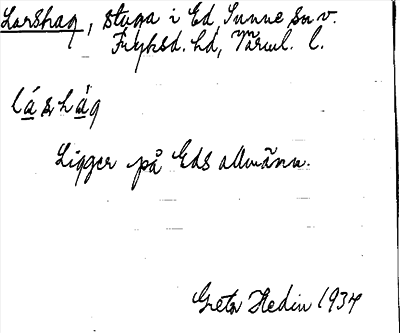 Larshag, stuga i Ed, Sunne sn v.
Fryksd. hd, Värml. l.
láshág
Ligger på Eds allmänn.
Greta Hedin 1934